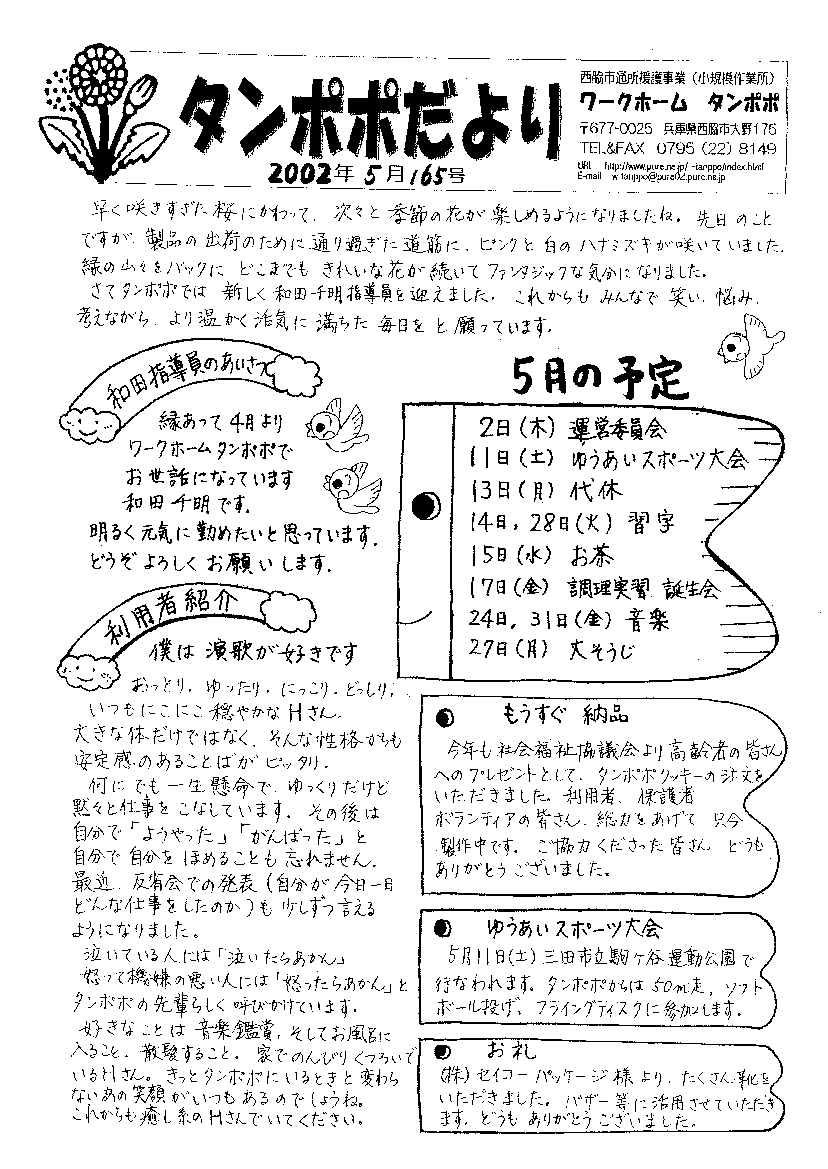 タンポポだより
2002年 5月165号
西脇市通所援護事業（小規模作業所）
ワークホーム タンポポ
〒677-0025 兵庫県西脇市大野175
TEL&FAX 0795 (22) 8149
URL http://www.pure.ne.jp/
E-mail
早く咲きすぎた桜にかわって、次々と季節の花が楽しめるようになりましたね。先日のこと
ですが、製品の出荷のために通り過ぎた道筋に、ピンクと白のハナミズキが咲いていました。
緑の山々をバックに どこまでも きれいな花が続いてファンタジックな気分になりました。
さてタンポポでは 新しく和田千明指導員を迎えました。これからも みんなで笑い、悩み、
考えながら、より温かく活気に満ちた毎日をと願っています。
和田指導員のあいさつ
縁あって4月より
ワークホームタンポポで
お世話になっています
和田千明です。
明るく元気に勤めたいと思っています。
どうぞよろしくお願いします。
利用者紹介
僕は演歌が好きです
おっとり、ゆったり、にっこり、どっしり、
いつもにこにこ穏やかなHさん。
大きな体だけではなく、そんな性格からも
安定感のあることばがピッタリ。
何にでも一生懸命で、ゆっくりだけど
黙々と仕事をこなしています。その後は
自分で「ようやった」「がんばった」と
自分で自分をほめることも忘れません。
最近、反省会での発表（自分が今日一日
どんな仕事をしたのか）も少しずつ言える
ようになりました。
泣いている人には「泣いたらあかん」
怒って機嫌の悪い人には「怒ったらあかん」と
タンポポの先輩らしく呼びかけています。
好きなことは音楽鑑賞、そしてお風呂に
入ること、散髪すること。家でのんびりくつろいで
いるHさん。きっとタンポポにいるときと変わら
ないあの笑顔がいつもあるのでしょうね。
これからも癒し系のHさんでいてください。
5月の予定
2日(木) 運営委員会
11日(土) ゆうあいスポーツ大会
13日(月) 代休
14日、28日(火) 習字
15日(水) お茶
17日(金) 調理実習、誕生会
24日、31日(金) 音楽
27日(月) 大そうじ
もうすぐ 納品
今年も社会福祉協議会より高齢者の皆さん
へのプレゼントとして、タンポポクッキーの注文を
いただきました。利用者、保護者
ボランティアの皆さん、総力をあげて 只今
製作中です。ご協力くださった皆さん どうも
ありがとうございました。
ゆうあいスポーツ大会
5月11日(土)三田市立駒ヶ谷運動公園で
行なわれます。タンポポからは50m走、ソフト
ボール投げ、フライングディスクに参加します。
お礼
(株)セイコーパッケージ様より、たくさん靴を
いただきました。バザー等に活用させていただき
ます。どうもありがとうございました。